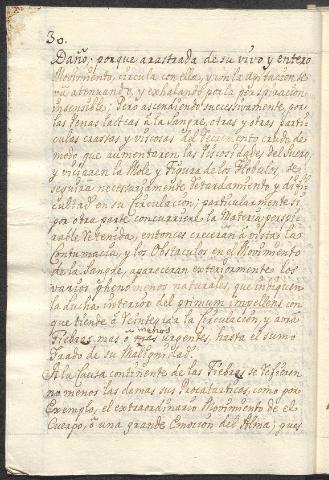 30.
Daño; porque arastrada de su vivo y entero
Movimiento, circula con ella, y con la agitacion se
va atenuando, y exhalando por la perspiracion
insensible; Pero ascendiendo successivamente, por
las Venas lacteas à la Sangre, otras y otras partí-
culas crassas y viscosas del crudo de
modo que aumentaren las Viscosidades del Suero,
y viciaren la Mole y Figura de los Globulos, se
seguirà necessariamente retardamiento, y difi-
cultad en su Circulacion; particularmente si
por otra parte concurriere la Materia perspi-
rable Retenida, entonces creceràn à vista la
Contumacia, y los Obstaculos en el Movimiento
de la Sangre, apareceran exteriormente los
varios phenomenos naturales, que indiquen
la lucha interior del primum impellens con
que tiende à Reintegrar la Circulacion, y avrà
Fiebres mas ò menos urgentes, hasta el sumo
Grado de su Malignidad.
A la Causa continente de las Fiebres se refieren
no menos las demas sus Procatarticas, como por
Exemplo, el extraordinario Movimiento de el
Cuerpo, ò una grande Emocion del Alma; pues